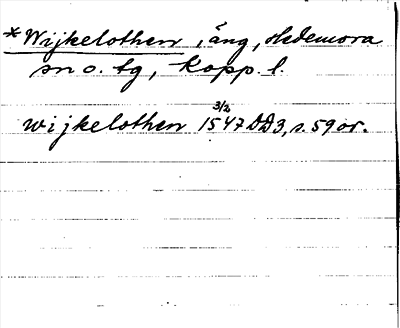 *Wijkelothen, äng, Hedemora
sn o. tg, Kopp. l.
3/2
wijkelothen 1547 DD3, s. 59 or.